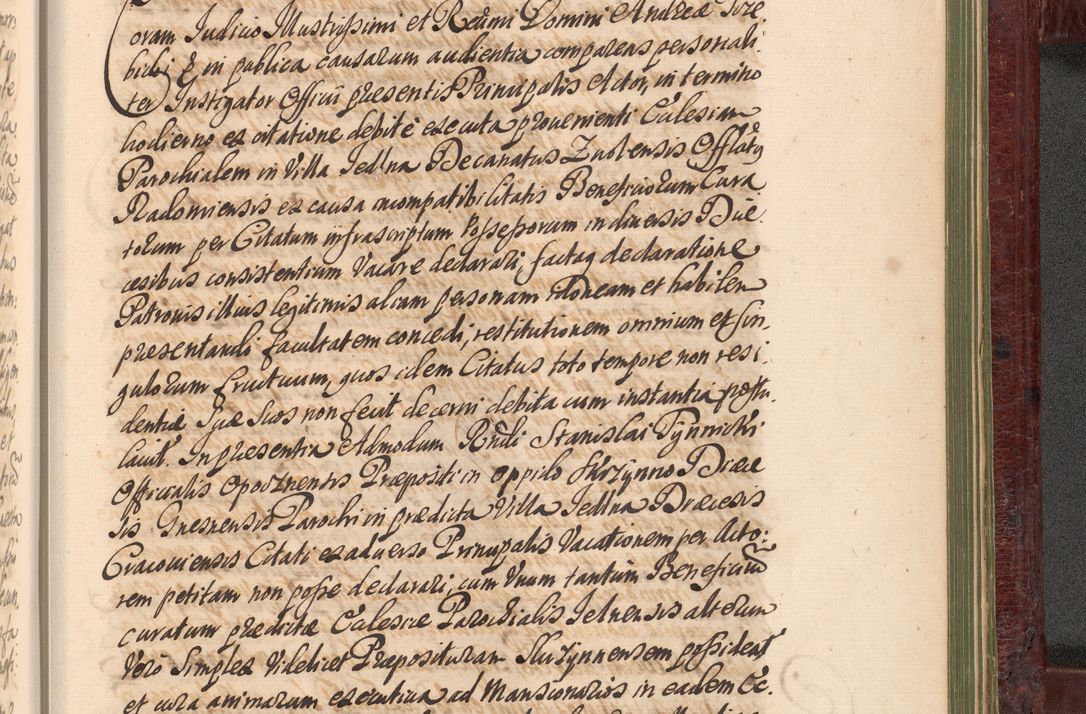 oram Judicio Illustrissimi et Reverendissimi Domini Andreæ Trze
bicki & in publica causarum audientia comparens personali
ter Instigator Officii præsentis Principalis Actor, in termino
hodierno ex citatione debitè executa provenienti Ecclesiam
Parochialem in Villa Jedlna Decanatus Zvolensis Offlatg
Radomiensis ex causa incompatibilitatis Beneficiorum Cura
torum per Citatum infrascriptum Possessorum in diversis Diæ
cesibus consistentium Vacare declarari, factaq declaratione
Patronis illius legitimis aliam personam idoneam et habilem
præsentandi facultatem concedi, restitutionem omnium et sin,
gulorum fructuum, quos idem Citatus toto tempore non resi
dentiæ suæ suos non fecit decerni debita cum instantia postu,
lavit. In præsentia Admodum Rndi Stanislai Tymicki
Officialis Opocznensis Præpositi in oppido Skrzynno Diæce
sis Gnesnensis Parochi in prædicta Villa Jedlna Diæcesis
Cracoviensis Citati ex adverso Principalis Vacationem per Acto:
rem petitam non posse declarari, cum Vnum tantum Beneficiũ
curatum prædictæ Ecclesiæ Parochialis Jelnensis alterum
Verò Simplex Videlicet Præposituram Skrzynnensem possideat
et cura animarum executiva ad Mansionarios in eadem Ec.